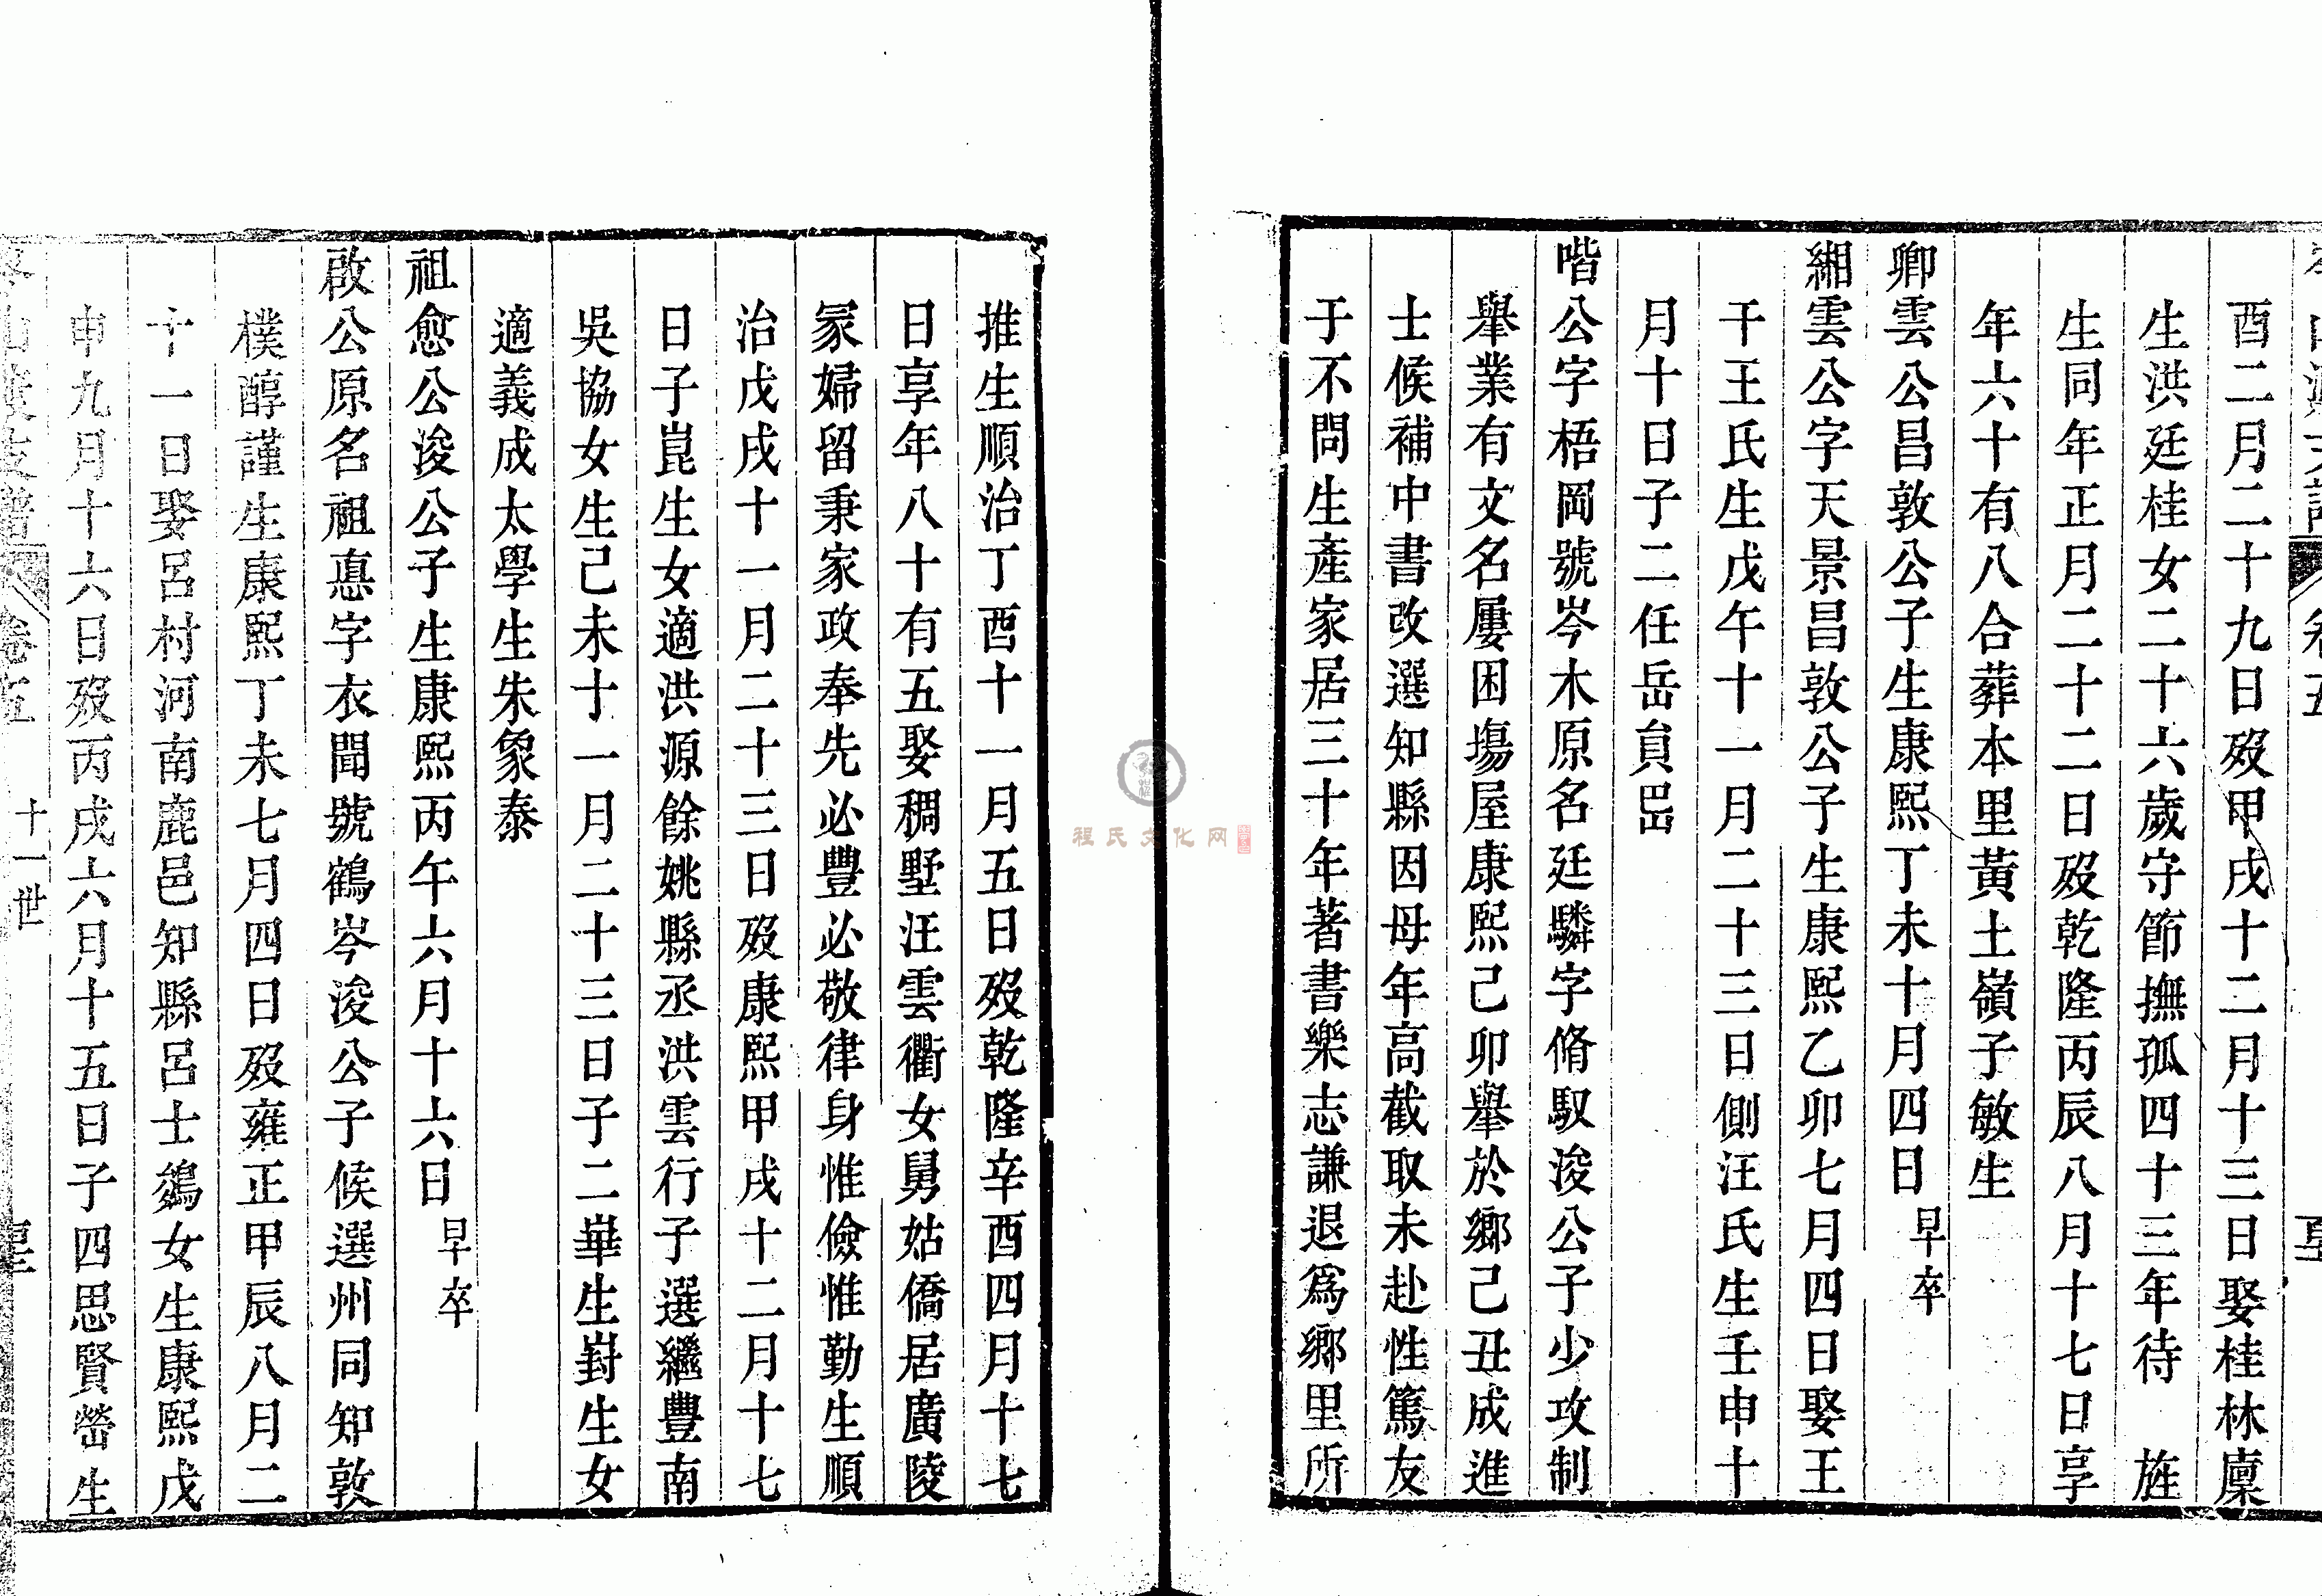 酉二月二十九日歿甲戌十二月十三日娶桂林廩
生洪廷桂女二十六歲守節撫孤四十三年待　旌
生同年正月二十二日歿乾隆丙辰八月十七日享
年六十有八合葬本里黃土嶺子敏生
卿雲公昌敦公子生康熙丁未十月四日早卒
緗雲公字天景昌敦公子生康熙乙卯七月四日娶王
干王氏生戊午十一月二十三日側汪氏生壬申十
月十日子二任岳貟岊
喈公字梧岡號岑木原名廷驎字脩馭浚公子少攻制
舉業有文名屢困場屋康熙己卯舉於鄉己丑成進
士候補中書改選知縣因母年高截取未赴性篤友
于不問生產家居三十年著書樂志謙退爲鄉里所
推生順治丁酉十一月五日歿乾隆辛酉四月十七
日享年八十有五娶稠墅汪雲衢女舅姑僑居廣陵
冡婦留秉家政奉先必豐必敬律身惟儉惟勤生順
治戊戌十一月二十三日歿康熙甲戌十二月十七
日子崑生女適洪源餘姚縣丞洪雲行子選繼豐南
吳協女生己未十一月二十三日子二崋生崶生女
適義成太學生朱象泰
祖愈公浚公子生康熙丙午六月十六日早卒
啟公原名祖悳字衣聞號鶴岑浚公子候選州同知敦
樸醇謹生康熙丁未七月四日歿雍正甲辰八月二
十一日娶呂村河南鹿邑知縣呂士鵕女生康熙戊
申九月十六日歿丙戌六月十五日子四思賢嵤生
卷五
十一世
程氏文化网